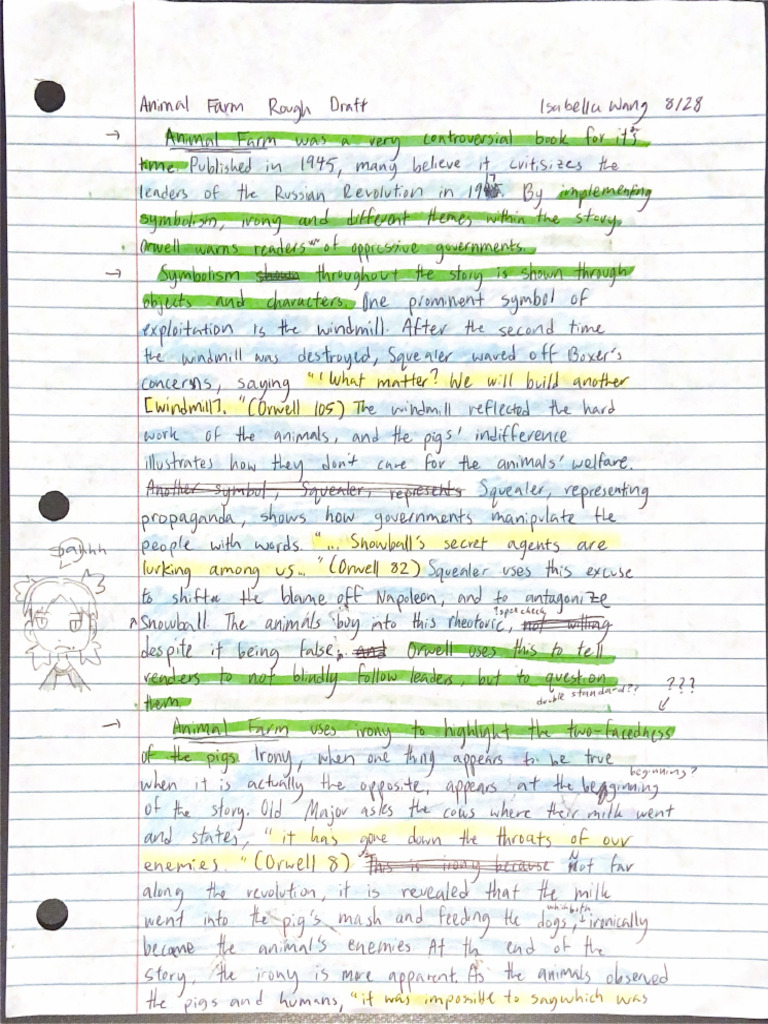 Animal Farm Rough Draft Isabella Wang 8/28
→ Animal Farm was a very controversial book for its
time. Published in 1945, many believe it critisizes the
leaders of the Russian Revolution in 1917. By implementing
symbolism, irony and different themes within the story,
Orwell warns readers of oppressive governments.
→ Symbolism shown throughout the story is shown through
objects and characters. One prominent symbol of
exploitation is the windmill. After the second time
the windmill was destroyed, Squealer waved off Boxer's
concerns, saying "'What matter? We will build another
[windmill]. "(Orwell 105) The windmill reflected the hard
work of the animals, and the pigs' indifference
illustrates how they don't care for the animals' welfare.
Another symbol, Squealer, represents Squealer, representing
propaganda, shows how governments manipulate the
people with words. "... Snowball's secret agents are
lurking among us..." (Orwell 82) Squealer uses this excuse
to shift the blame off Napoleon, and to antagonize
?spee check
Snowball. The animals buy into this rheotoric, not willing
despite it being false. and Orwell uses this to tell
readers to not blindly follow leaders, but to question
them.
double standard?? ???
→ Animal Farm uses irony to highlight the two-facedness
of the pigs. Irony, when one thing appears to be true
beginning?
when it is actually the opposite, appears at the beggining
of the story. Old Major asks the cows where their milk went
and states, "it has gone down the throats of our
enemies. "(Orwell 8) This is irony because Not far
along the revolution, it is revealed that the milk
which both
went into the pig's mash and feeding the dogs, ironically
become the animal's enemies At th end of the
story, the irony is more apparent. As the animals observed
the pigs and humans, "it was impossible to say which was